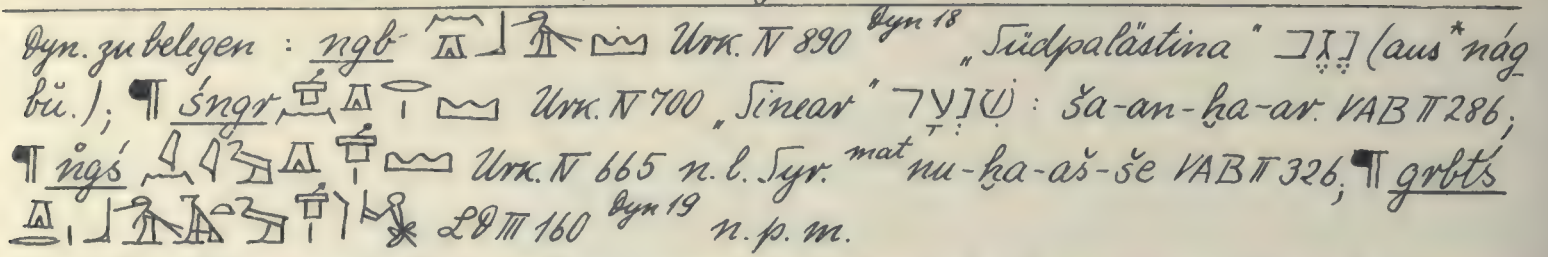 Dyn. zu belegen : ngb Urk. IV 890 Dyn 18 „Südpalästina“ נֶגֶב (aus *nág
bŭ.); ¶ śngr Urk. IV 700 „Sinear“ שִׁנְעָר : ša-an-ḫa-ar. VAB II 286;
¶ n̊gś Urk. IV 665 n. l. Syr. mat nu-ḫa-aš-še VAB II 326; ¶ grbtś
LD III 160 Dyn 19 n. p. m.